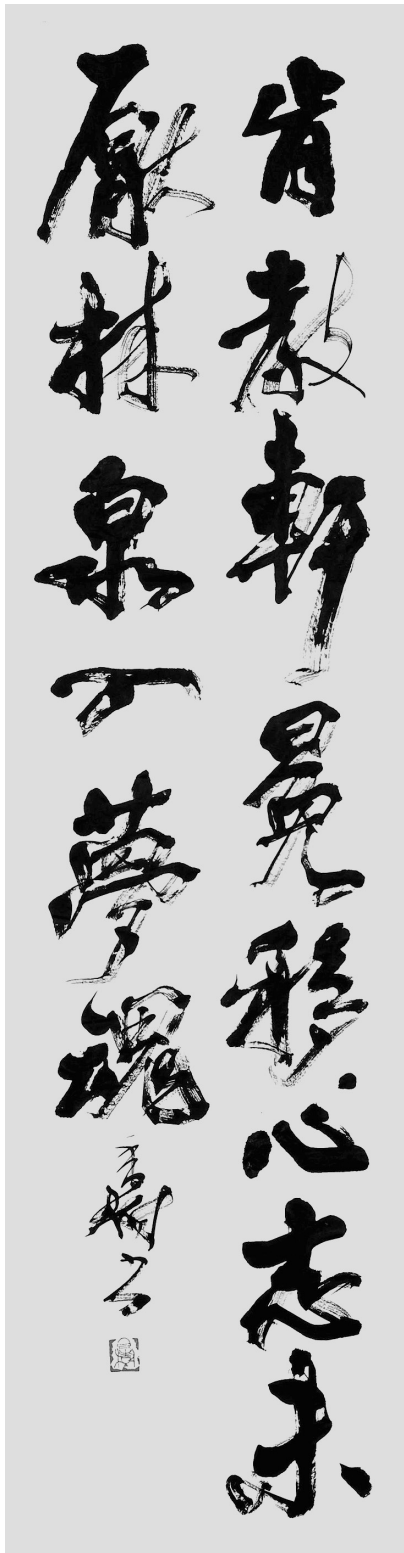 肯教軒冕移心志未
厭林泉夢魂